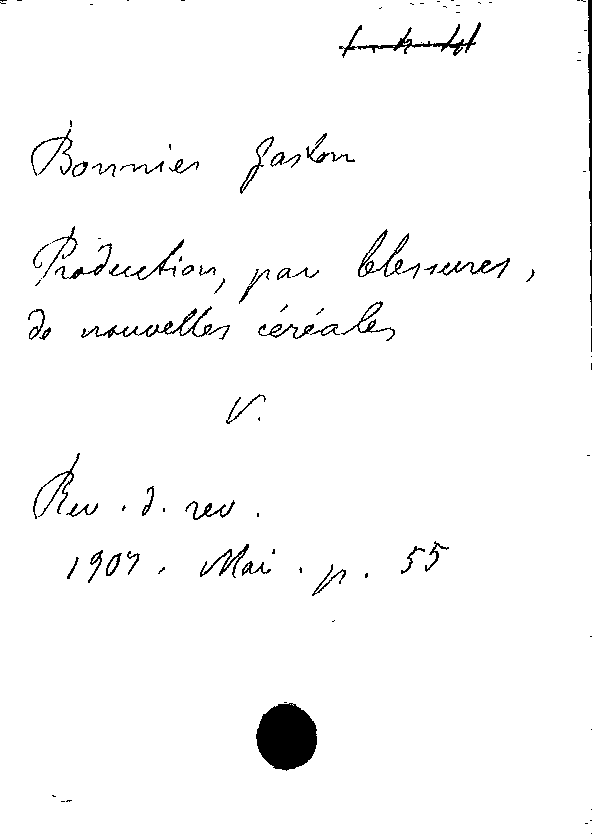 Bonnier Gaston
Production, par blessures,
de nouvelles céréales
V.
Rev. d. rev.
1907. Mai. p. 55